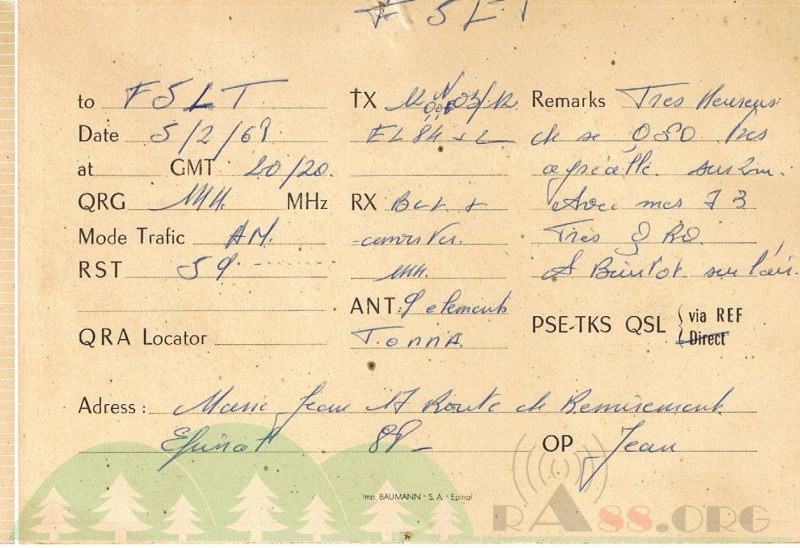 F5LT
to F5LT
Date 5/2/69
at GMT 20/20.
QRG 144. MHz
Mode Trafic AM.
RST 59
QRA Locator
TX 03/12
EL84
RX BCL +
converter.
144.
ANT: 9 elements
TONNA
Remarks Très Heureux
de ce QSO très
agréable sur 2m.
Avec mes 73
Très QRO.
A Bientot sur l'air.
PSE-TKS QSL via REF
Direct
Adress : Jean 17 Route de Remiremont
Epinal 88- OP Jean
Imp. BAUMANN - S. A. - Epinal
RA88.ORG